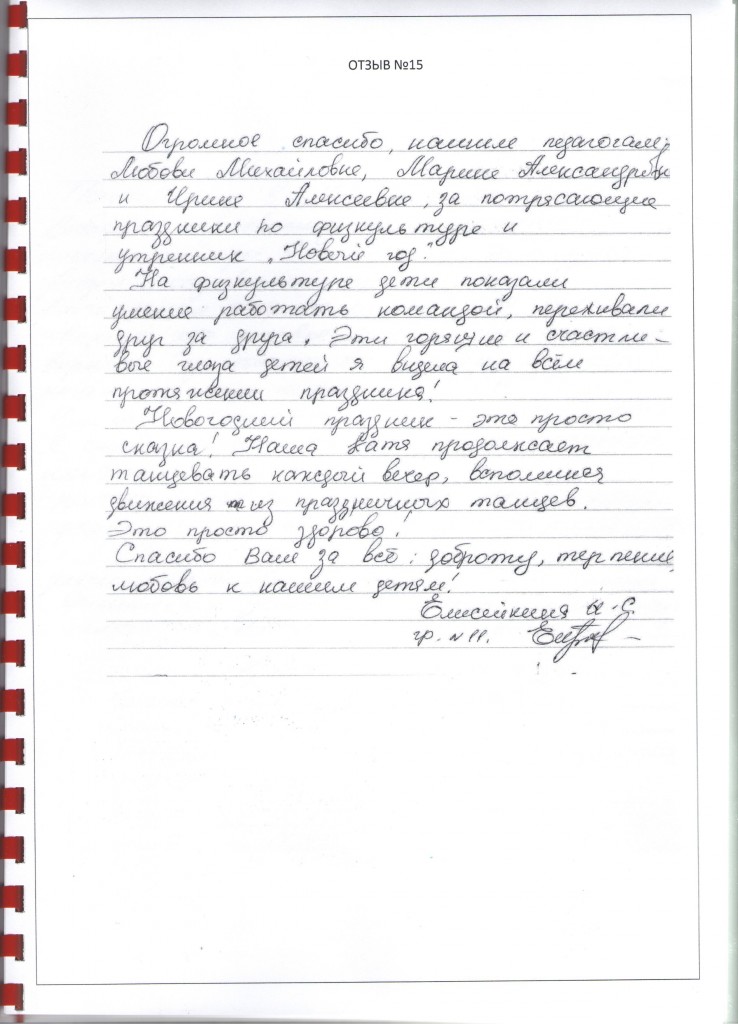 ОТЗЫВ №15
Огромное спасибо, нашим педагогам:
Любови Михайловне, Марине Александровне
и Ирине Алексеевне, за потрясающие
праздники по физкультуре и
утренник „Новый год".
На физкультуре дети показали
умение работать командой, переживали
друг за друга. Эти горящие и счастли-
вые глаза детей я видела на всём
протяжении праздника!
Новогодний праздник - это просто
сказка! Наша Катя продолжает
танцевать каждый вечер, вспоминая
движения из праздничных танцев.
Это просто здорово!
Спасибо Вам за всё: доброту, терпение,
любовь к нашим детям!
Елисейкина С.
гр. №11.